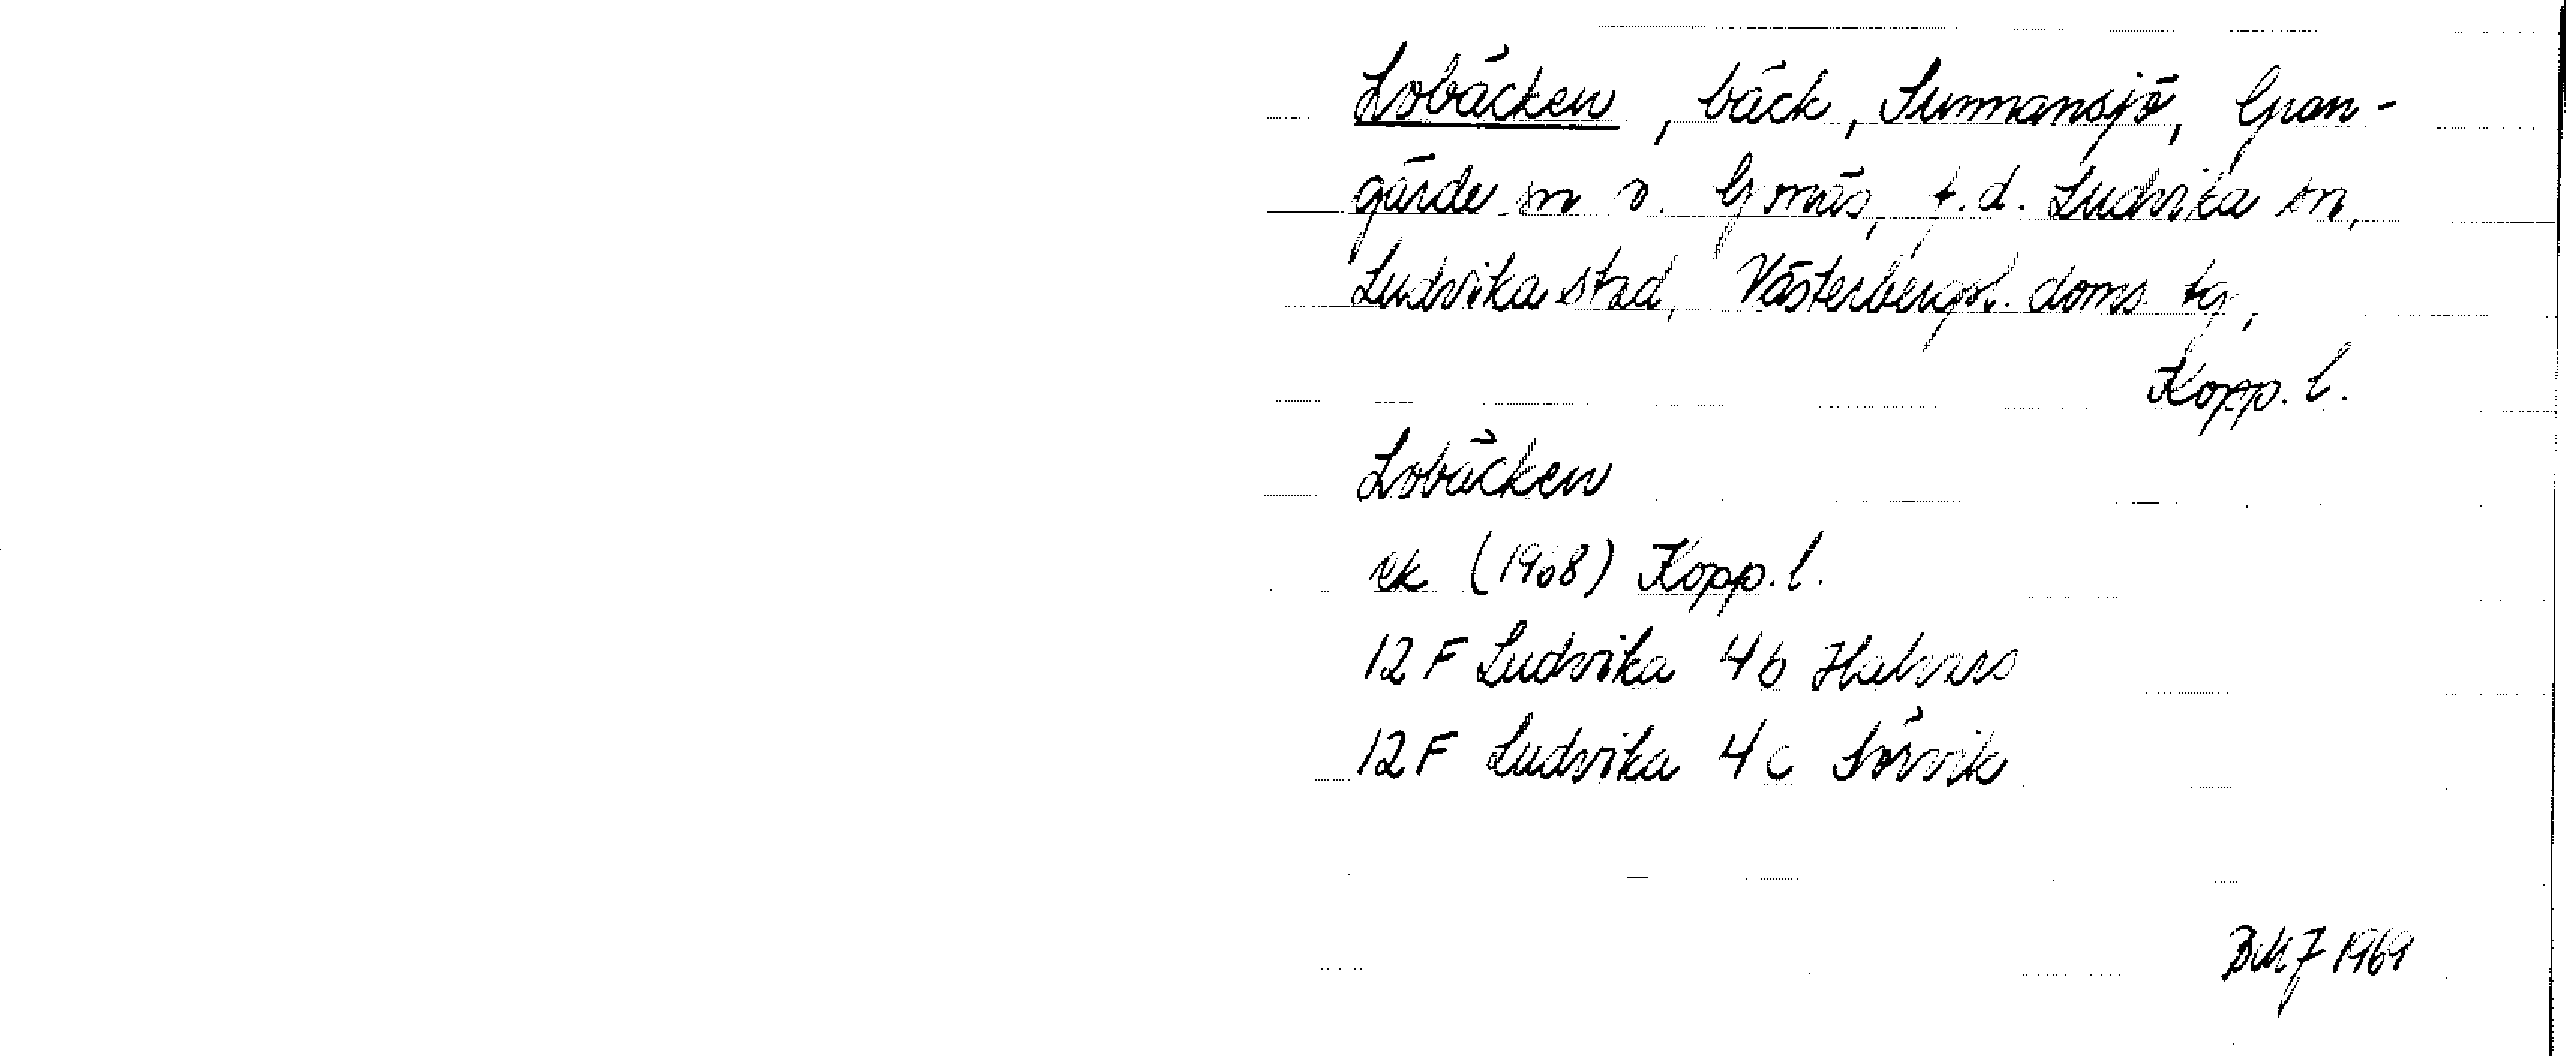 Lobäcken, bäck, Sunnansjö, Gran-
gärde sn o. Gonäs, f.d. Ludvika sn,
Ludvika stad, Västerbergsl. doms. tg,
Kopp. l.
Lobäcken
ek (1968) Kopp. l.
12 F Ludvika 4b Halvars
12 F Ludvika 4c Sörvik
BMJ 1969